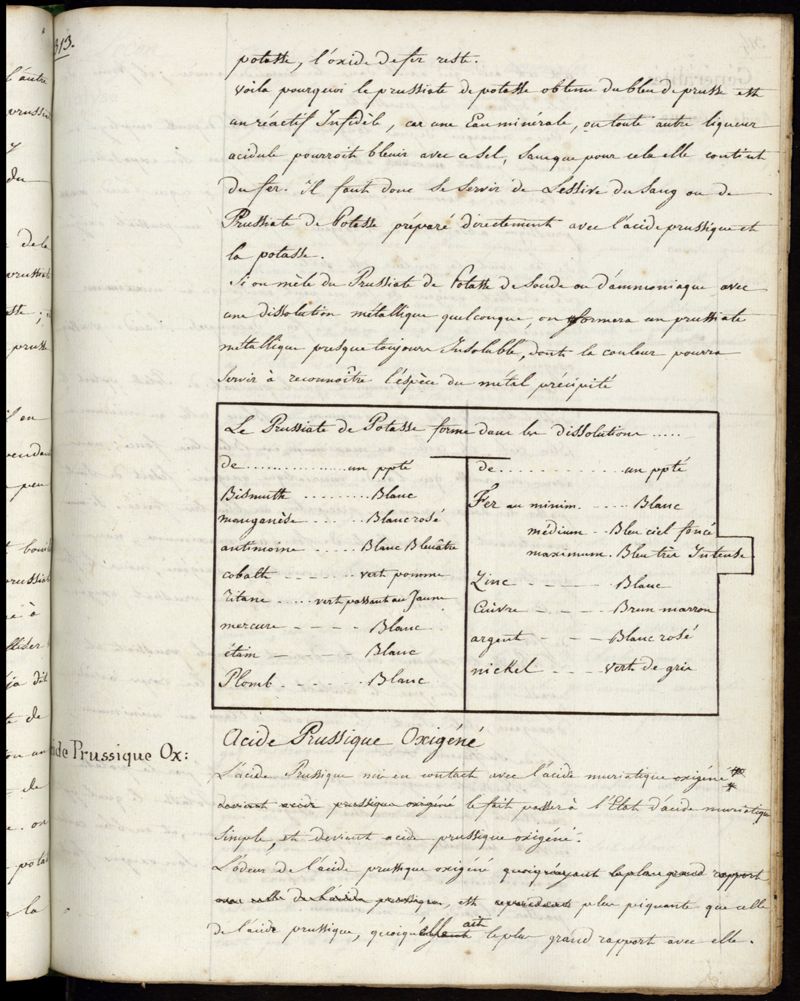 313.
potasse, l'oxide de fer reste.
Voila pourquoi le prussiate de potasse obtenu du bleu de prusse est
un réactif Infidèle, car une Eau minérale, ou toute autre liqueur
acidule pourroit bleuir avec ce sel, sans que pour cela elle contint
du fer. il faut donc se servir de Lessive du Sang ou de
Prussiate de Potasse préparé directement avec l'acide prussique et
la potasse.
Si on mèle du Prussiate de Potasse de Soude ou d'ammoniaque avec
une dissolution métallique quelconque, on formera un prussiate
métallique presque toujours Insoluble, dont la couleur pourra
Servir à reconnoître l'espèce du métal précipité
Le Prussiate de Potasse forme dans les dissolutions .....
de ............... un ppté
Bismuth ......... Blanc
manganèse ...... Blanc rosé
antimoine ...... Blanc Bleuâtre
cobalte ..... vert pomme
titane ..... vert passant au Jaune
mercure - - - - Blanc
étain - - - - Blanc
Plomb - - - - Blanc
de ............... un ppté
Fer au minim. - - - Blanc
médium - Bleu ciel foncé
maximum. Bleu très Intense
Zinc - - - - Blanc
Cuivre - - - - Brun marron
argent - - - - Blanc rosé
nickel - - - vert de gris
ide Prussique Ox:
Acide Prussique Oxigéné
L'acide Prussique mis en contact avec l'acide muriatique oxigéné
devient acide prussique oxigéné le fait passer à l'Etat d'acide muriatique
Simple, et devient acide prussique oxigéné.
L'odeur de l'acide prussique oxigéné quoiqu'ayant le plus grand rapport
avec celle de l'acide prussique, est cependant plus piquante que celle
de l'acide prussique, quoiqu'elle ait le plus grand rapport avec elle.